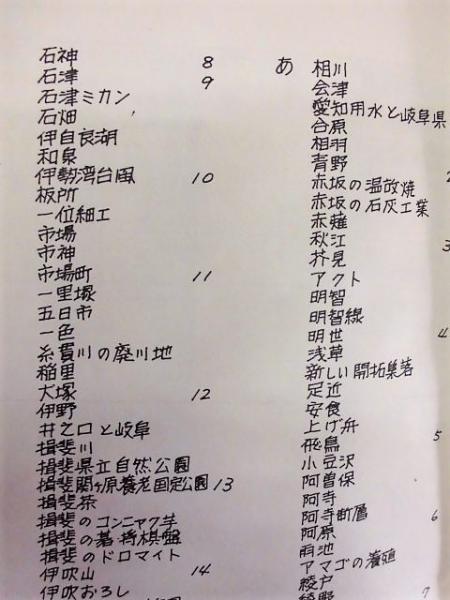 石神 8
石津 9
石津ミカン
石畑
伊自良湖
和泉
伊勢湾台風 10
板所
一位細工
市場
市神
市場町 11
一里塚
五日市
一色
糸貫川の廃川地
稲里
大塚 12
伊野
井之口と岐阜
揖斐川
揖斐県立自然公園
揖斐関ヶ原養老国定公園 13
揖斐茶
揖斐のコンニャク芋
揖斐の碁・将棋盤
揖斐のドロマイト
伊吹山 14
伊吹おろし
あ 相川
会津
愛知用水と岐阜県
合原
相羽
青野
赤坂の温故焼
赤坂の石灰工業
赤薙
秋江
芥見 3
アクト
明智
明智線
明世 4
浅草
新しい開拓集落
足近
安食
上げ舟
飛鳥 5
小豆沢
阿曽保
阿寺
阿寺断層 6
阿原
雨池
アマゴの養殖
綾戸
綾野 7